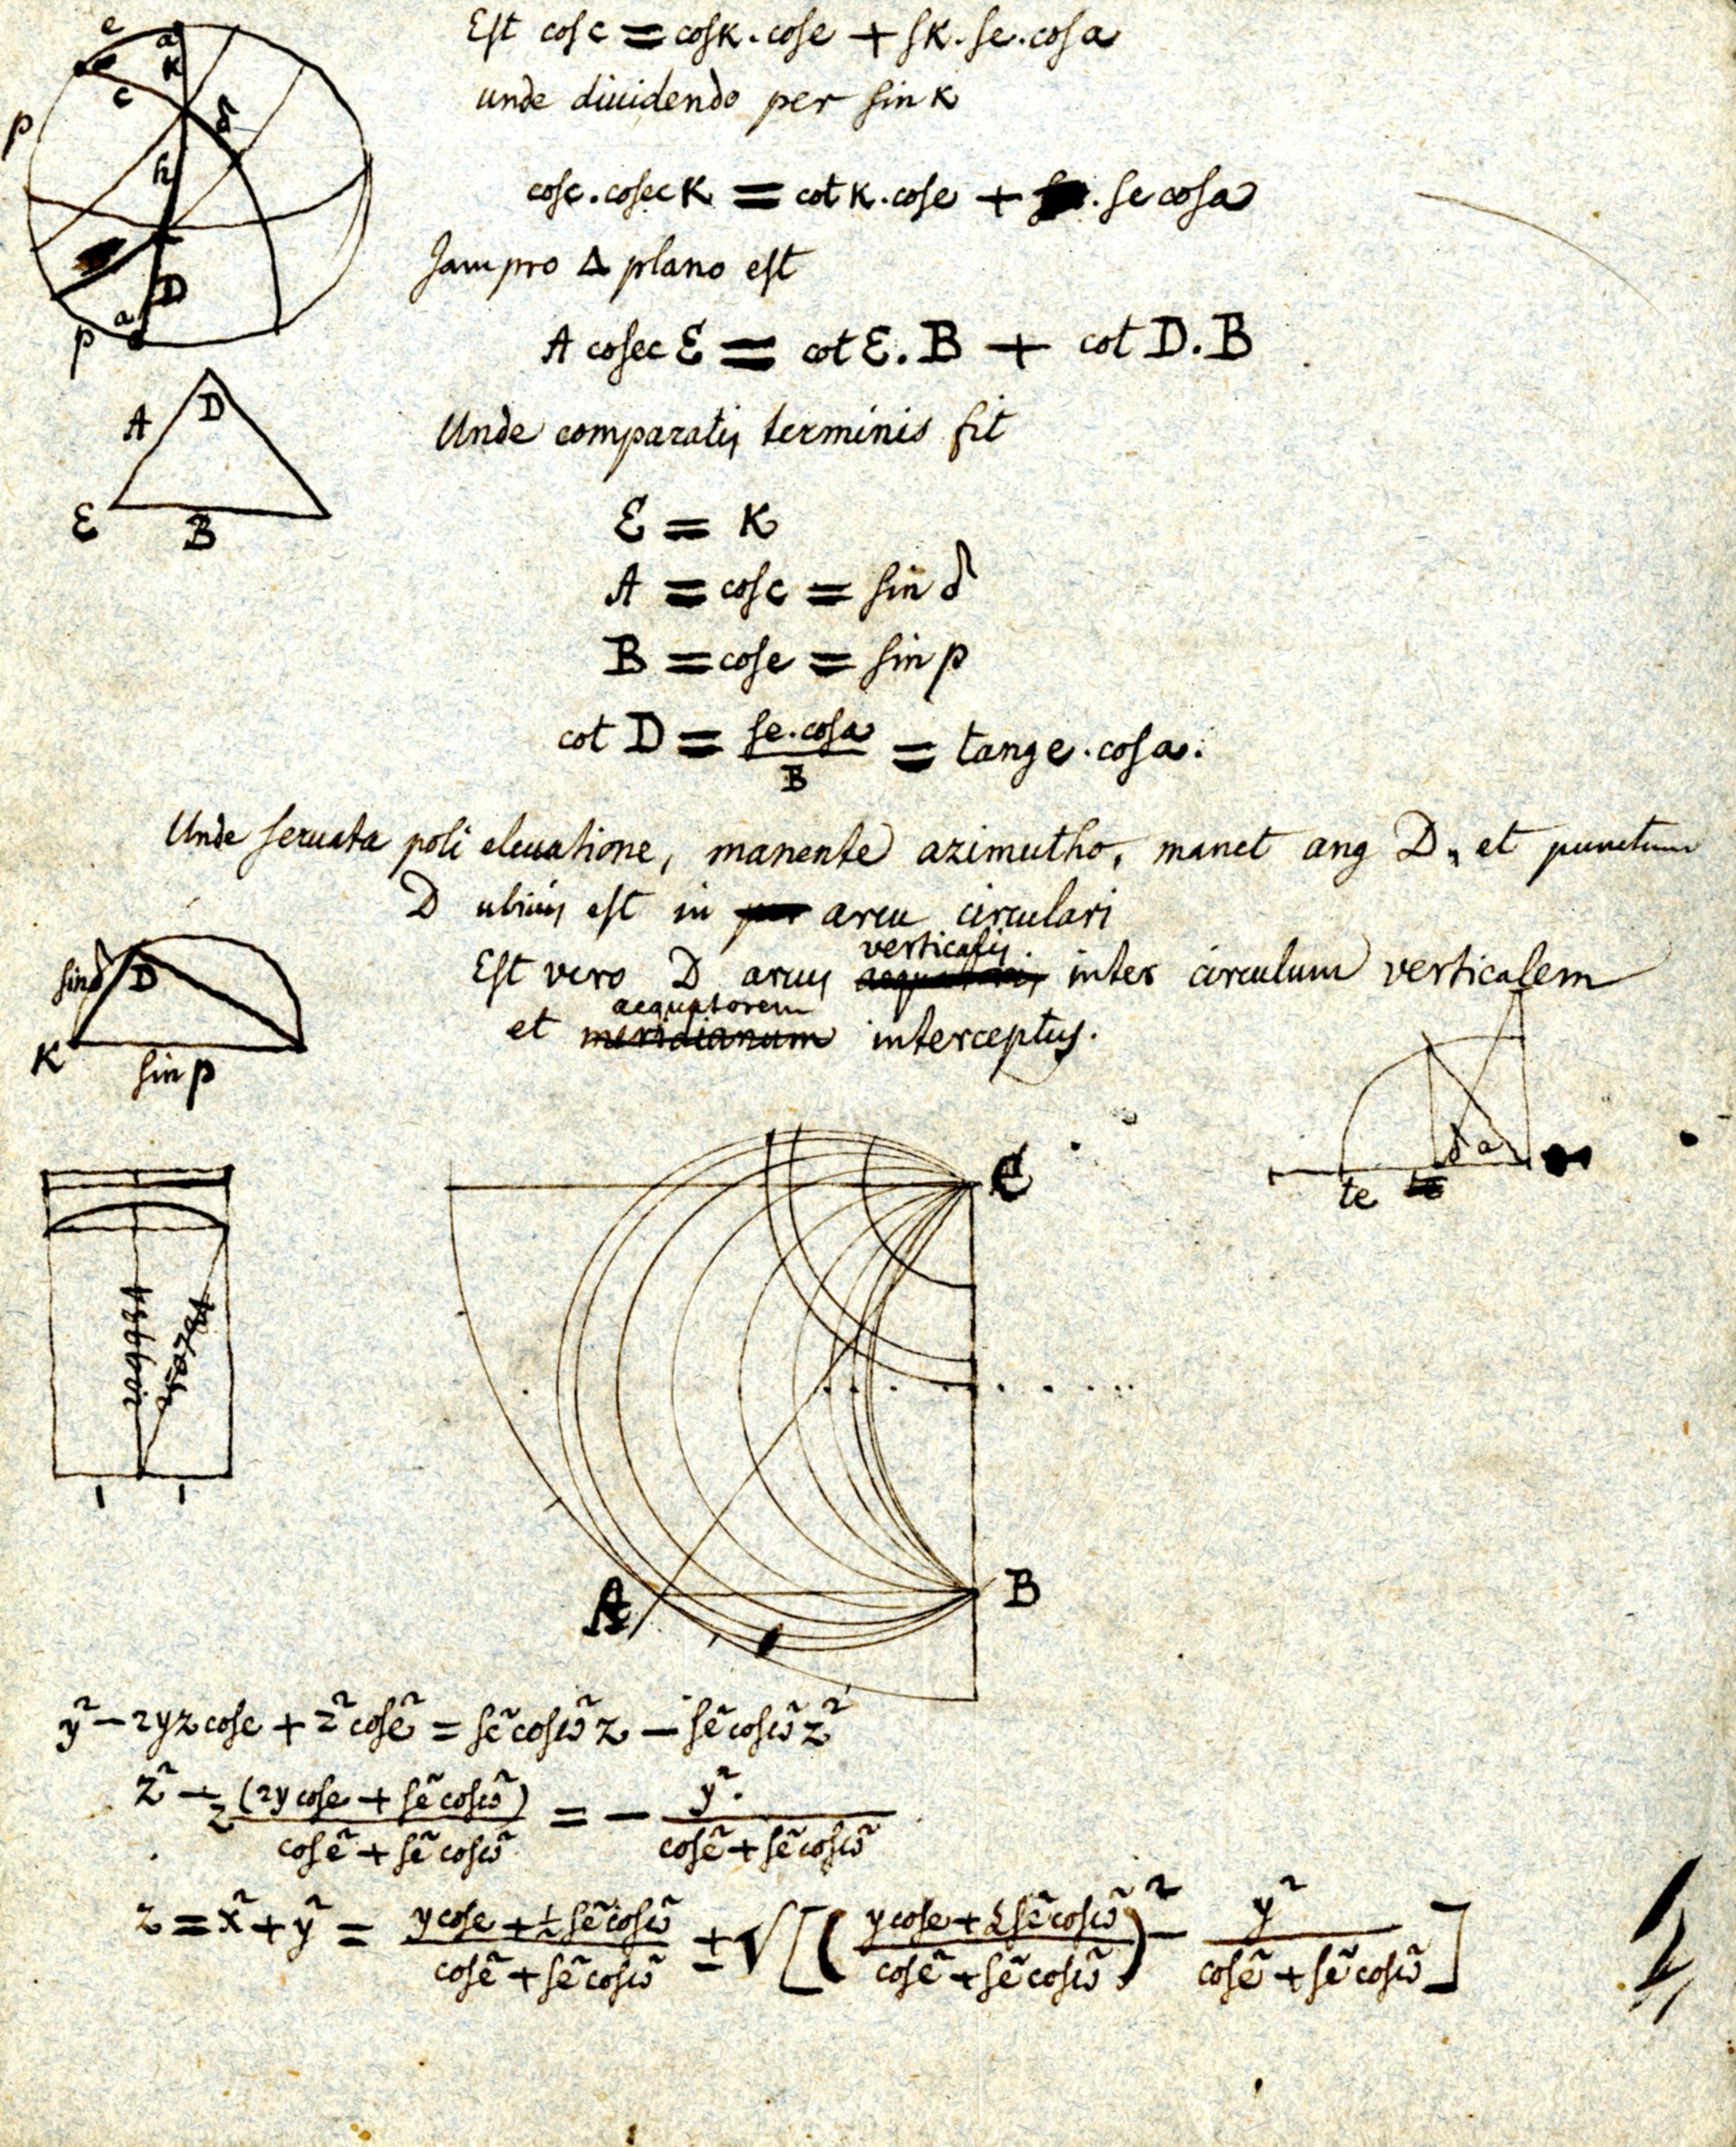 e a
K
c
δ
p
h
D
a
p
Est cosc = cosK.cose + sK.se.cosa
unde diuidendo per sin K
cosc.cosecK = cotK.cose + . se cosa
Jam pro Δ plano est
A cosec E = cotE.B + cot D.B
A D
E B
Unde comparatis terminis fit
E = K
A = cosc = sin δ
B = cose = sin p
cot D = se.cosa / B = tang e.cosa.
Unde seruata poli eleuatione, manente azimutho, manet ang D, et punctum
D ubiuis est in arcu circulari
verticalis.
Est vero D arcus inter circulum verticalem
aequatorem
et meridianum interceptus.
sinδ D
K sin p
δ a
te
C
A B
y² − 2yz cose + z² cose² = se² cosω² z − se² cosω² z²
z² − z (2y cose + se² cosω²) / cose² + se² cosω² = − y². / cose² + se² cosω²
z = x² + y² = y cose + ½ se² cosω² / cose² + se² cosω² ± √[(y cose + ½ se² cosω² / cose² + se² cosω²)² − y² / cose² + se² cosω²]